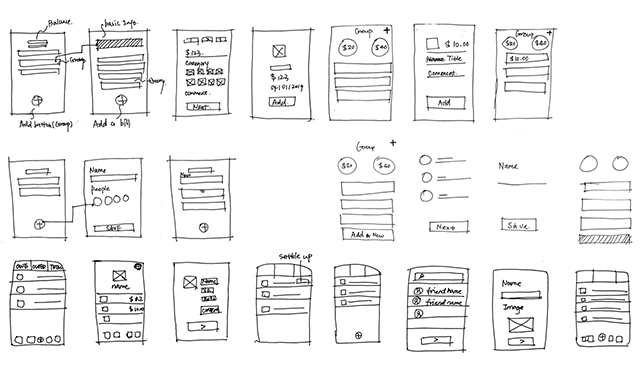 Balance.
basic Info.
Add button (Group)
Add a bill
$123.
Category
comment.
Next.
$123
Add.
Group +
$20 $40
$10.00
Name. Title
Comment.
Add
Group +
$20 $40
$10.00
Name
People
SAVE
Group +
$20 $40
Add a New
Next
Name
Save.
name
>
settle up
friend name
friend name
>
Name
Image
>